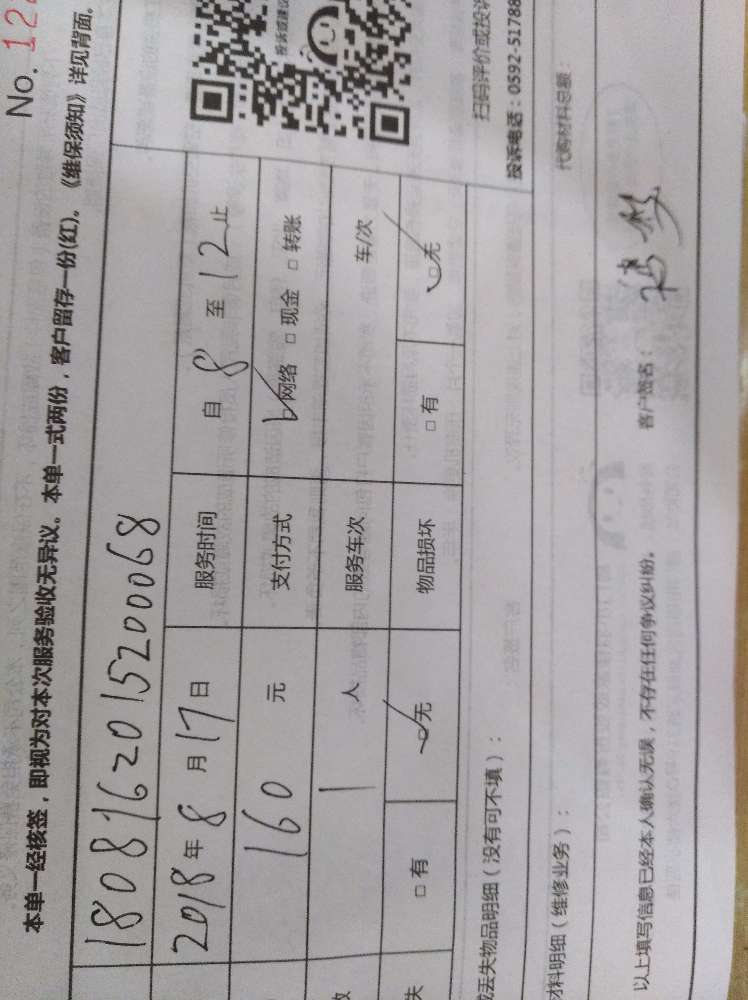 No. 12
本单一经核签，即视为对本次服务验收无异议。本单一式两份，客户留存一份(红)。《维保须知》详见背面。
180816201520000068
2018年8月17日 服务时间 自8至12止
160元 支付方式 ☑网络 □现金 □转账
1人 服务车次 车/次
失 □有 ☑无 物品损坏 □有 ☑无
投诉或建议
扫码评价或投诉
投诉电话：0592-51788
丢失物品明细（没有可不填）：
材料明细（维修业务）： 代购材料总额：
以上填写信息已经本人确认无误，不存在任何争议纠纷。 客户签名：